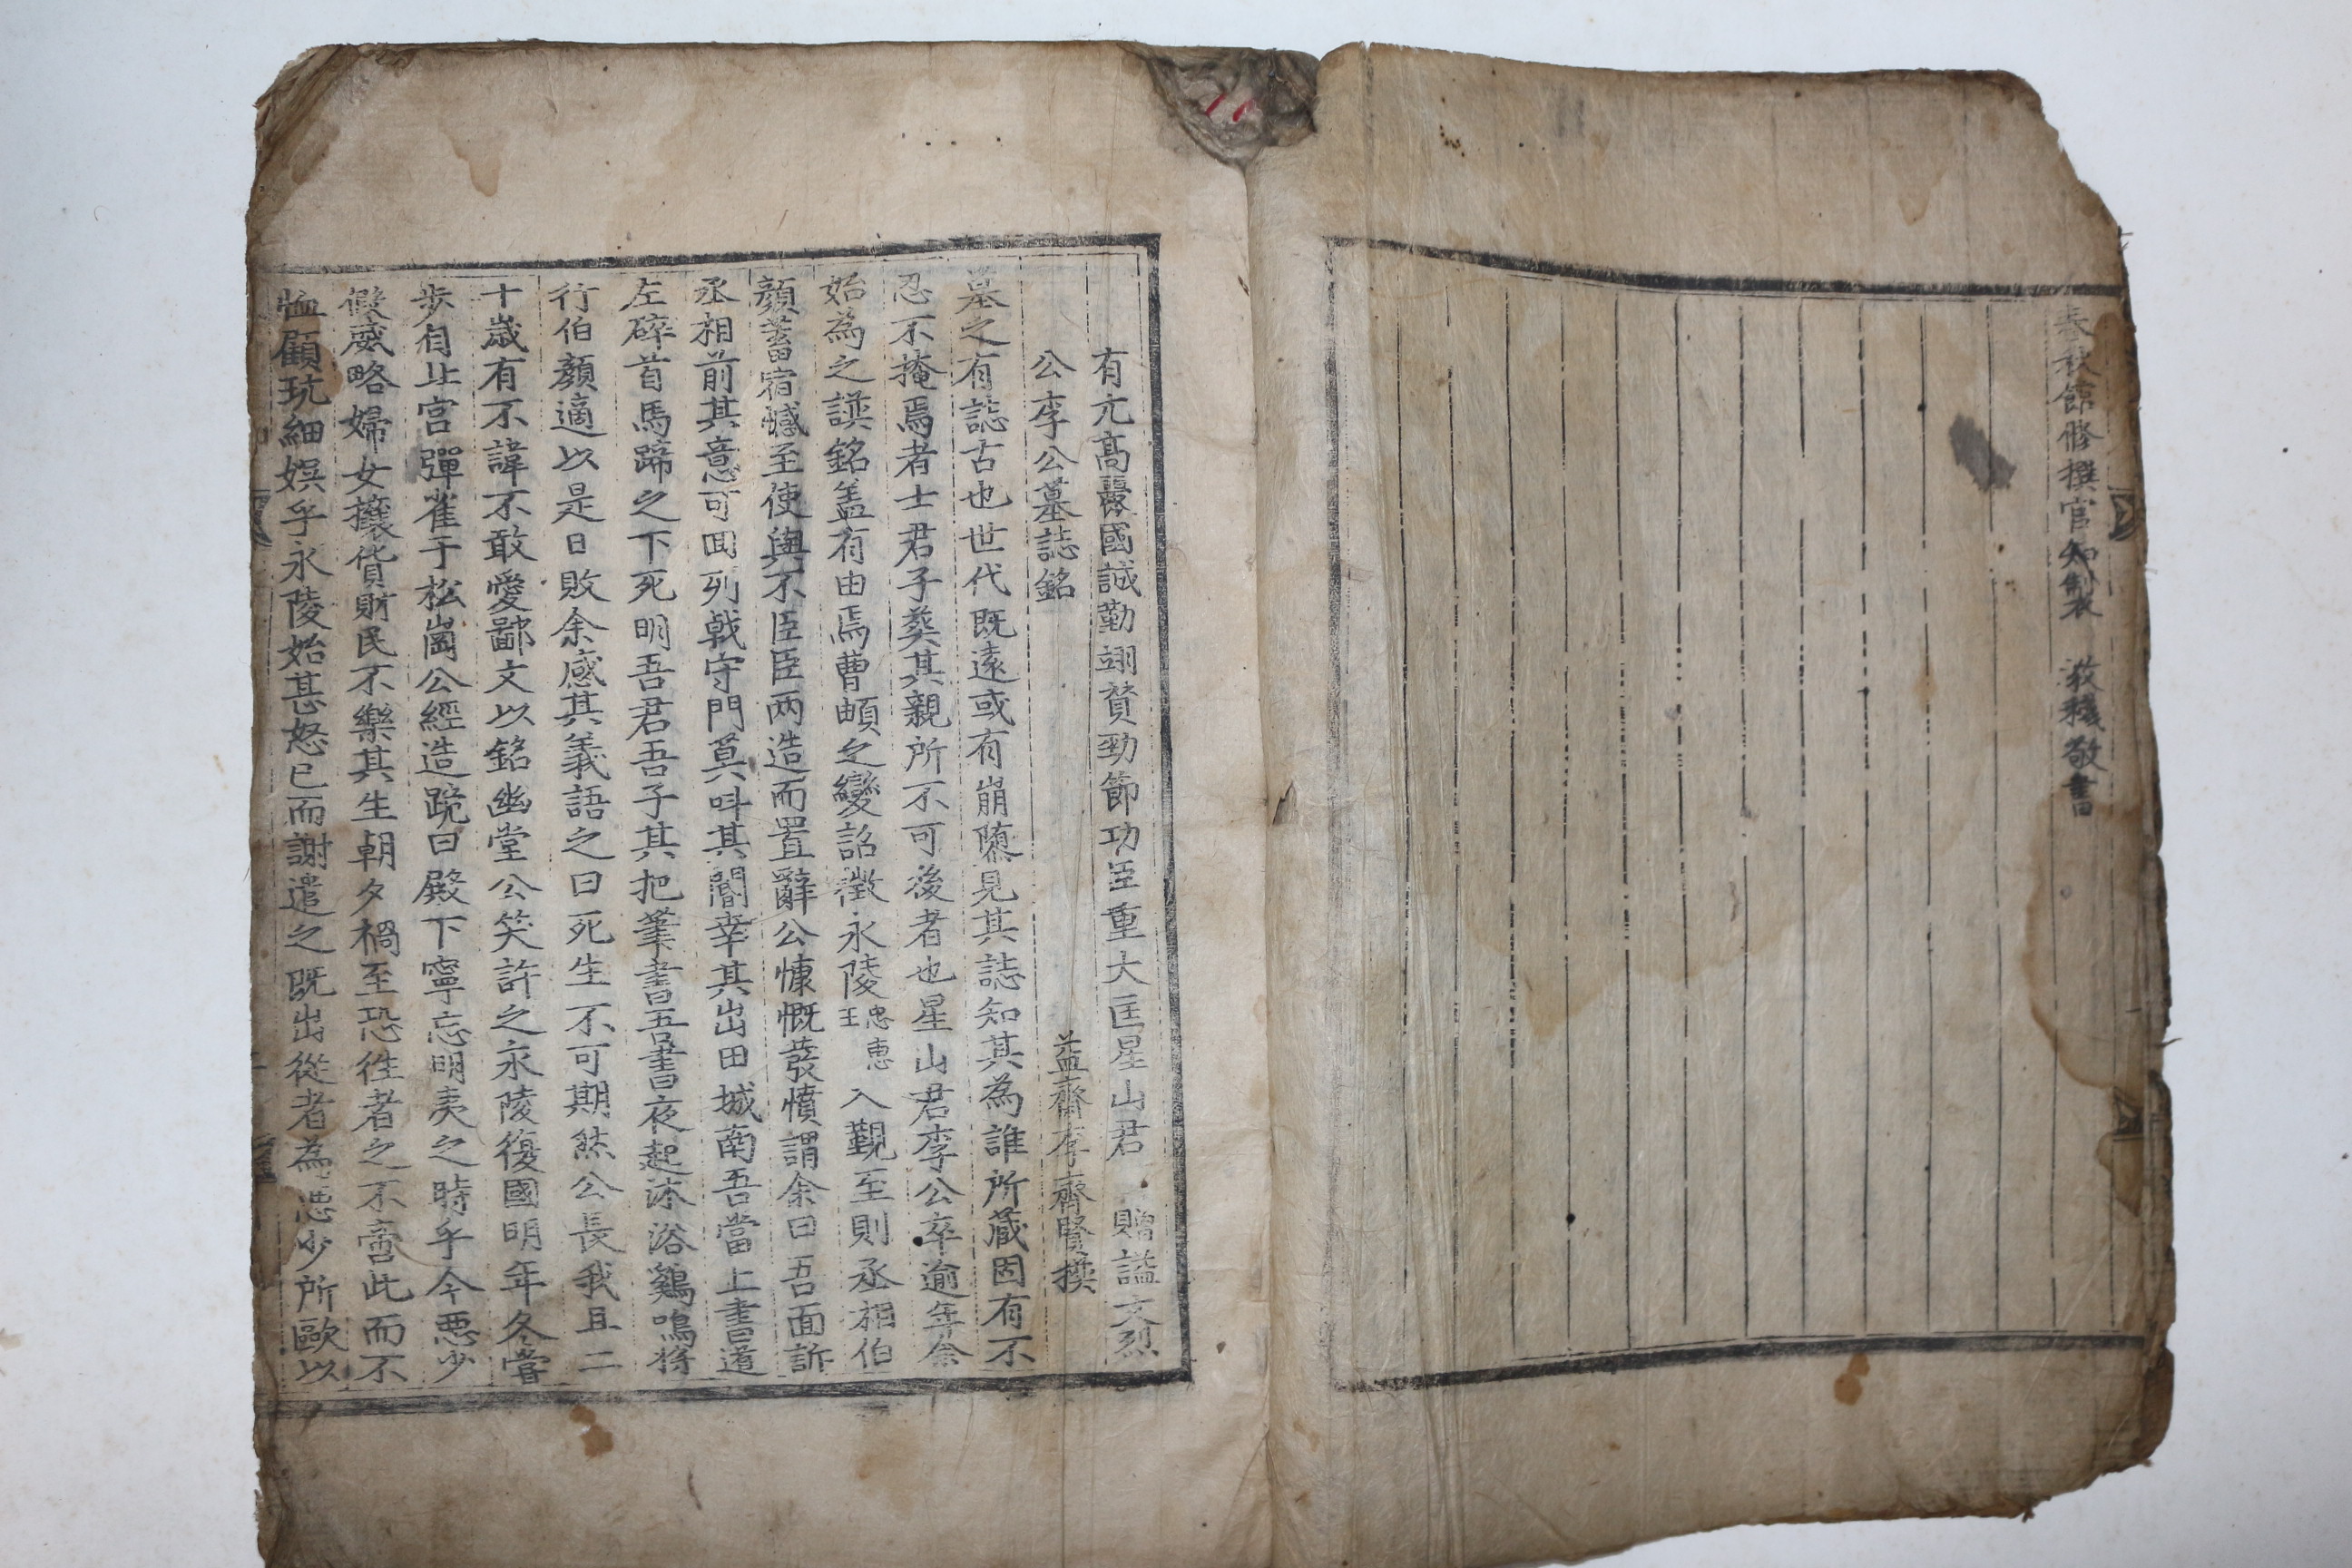 春秋館修撰官知製 教稷敬書
有元高麗國誠勤翊贊勁節功臣重大匡星山君 贈謚文烈
公李公墓誌銘 益齋李齊賢撰
墓之有誌古也世代既遠或有崩隳見其誌知其為誰所蔵固有不
忍不掩焉者士君子葬其親所不可後者也星山君李公卒逾年余
始為之譔銘盖有由焉曹頔之變詔徵永陵忠惠王入覲至則丞相伯
顔蓄宿憾至使與不臣臣兩造而置辭公慷慨發憤謂余曰吾面訴
丞相前其意可囬列戟守門莫呌其閽幸其出田城南吾當上書道
左碎首馬蹄之下死明吾君吾子其把筆書吾書夜起沐浴鷄鳴将
行伯顔適以是日敗余感其義語之曰死生不可期然公長我且二
十歲有不諱不敢愛鄙文以銘幽堂公笑許之永陵復國明年冬嘗
步自北宫彈雀于松崗公經造跪曰殿下寧忘明夷之時乎今惡少
假威略婦女攘貨財民不樂其生朝夕禍至恐徃者之不啻此而不
恤顧玩細娯乎永陵始甚怒已而謝遣之既出從者為惡少所歐以